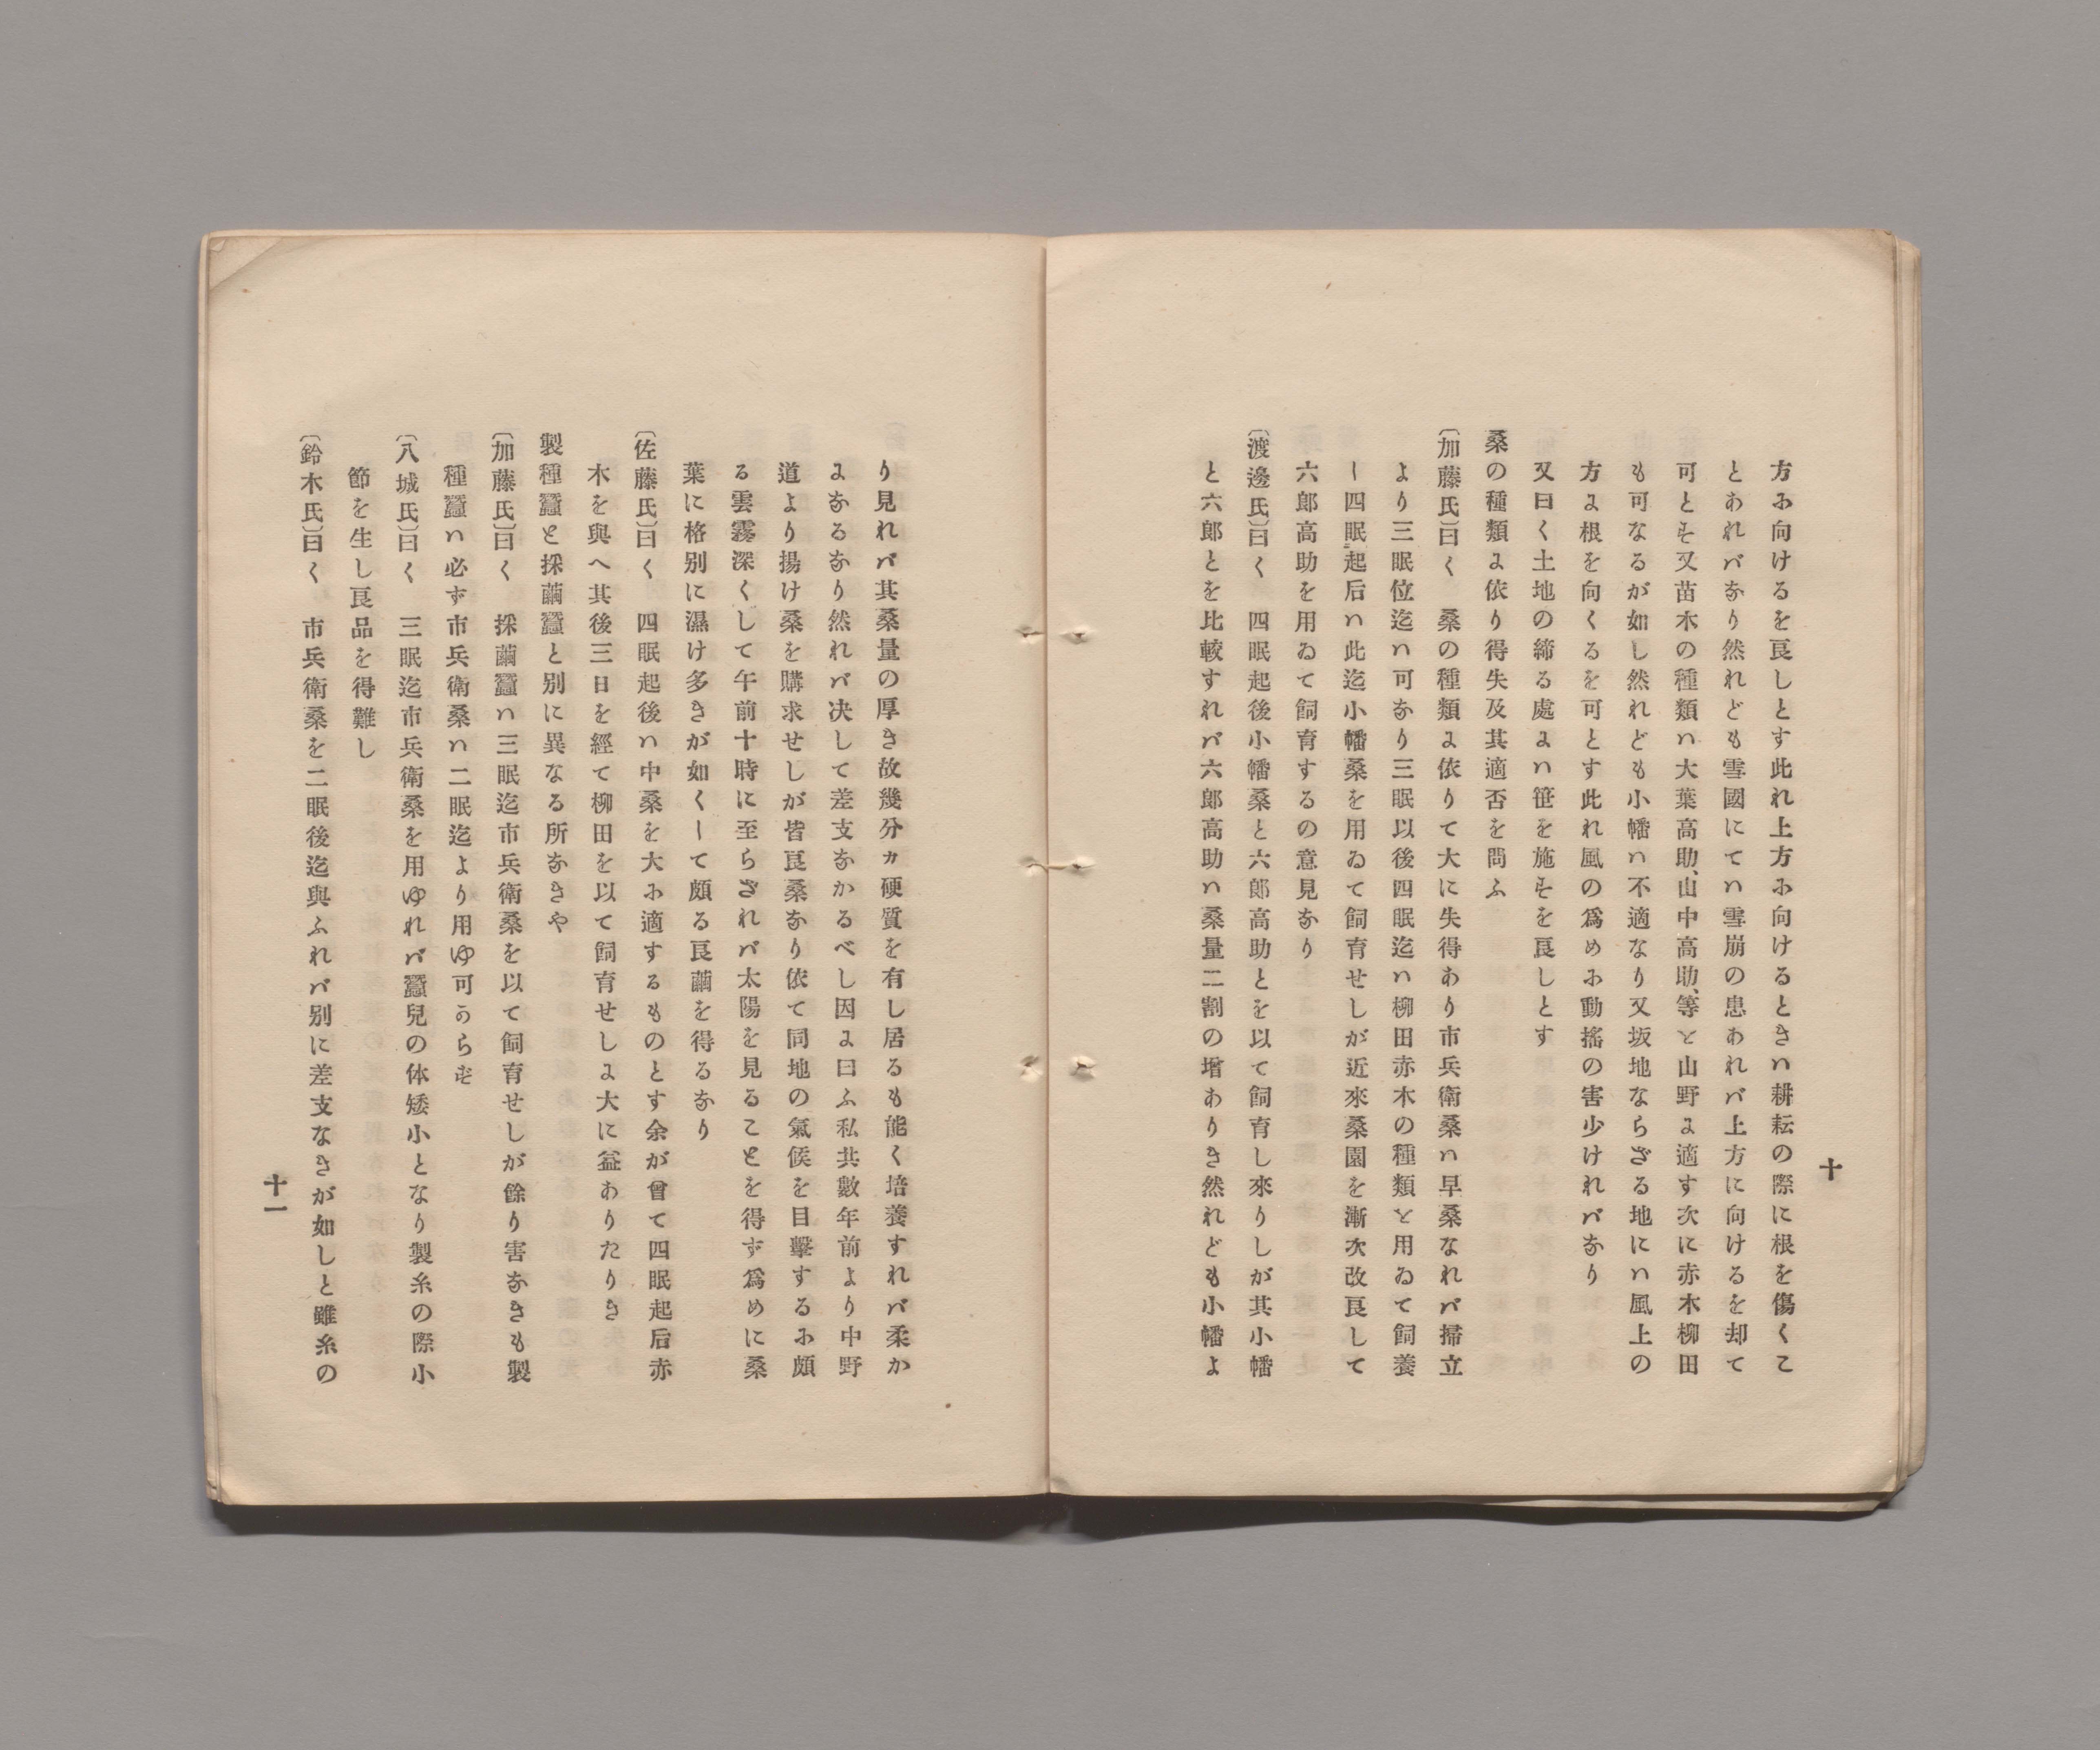 十
方に向けるを良しとす此れ上方に向けるときハ耕耘の際に根を傷くこ
とあれバなり然れども雪國にてハ雪崩の患あれバ上方に向けるを却て
可とす又苗木の種類ハ大葉高助、山中高助、等を山野に適す次に赤木柳田
も可なるが如し然れども小幡ハ不適なり又坂地ならざる地にハ風上の
方に根を向くるを可とす此れ風の爲めに動搖の害少けれバなり
又曰く土地の締る處にハ笹を施すを良しとす
桑の種類に依り得失及其適否を問ふ
〔加藤氏〕曰く　桑の種類に依りて大に失得あり市兵衛桑ハ早桑なれバ掃立
より三眠位迄ハ可なり三眠以後四眠迄ハ柳田赤木の種類を用ゐて飼養
し四眠起后ハ此迄小幡桑を用ゐて飼育せしが近來桑園を漸次改良して
六郎高助を用ゐて飼育するの意見なり
〔渡邊氏〕曰く　四眠起後小幡桑と六郎高助とを以て飼育し來りしが其小幡
と六郎とを比較すれバ六郎高助ハ桑量二割の增ありき然れども小幡よ
り見れバ其桑量の厚き故幾分カ硬質を有し居るも能く培養すれバ柔か
になるなり然れバ决して差支なかるべし因に曰ふ私共數年前より中野
道より揚け桑を購求せしが皆良桑なり依て同地の氣候を目擊するに頗
る雲霧深くして午前十時に至らざれバ太陽を見ることを得ず爲めに桑
葉に格別に濕け多きが如くして頗る良繭を得るなり
〔佐藤氏〕曰く　四眠起後ハ中桑を大に適するものとす余が曾て四眠起后赤
木を與へ其後三日を經て柳田を以て飼育せしに大に益ありたりき
製種蠶と採繭蠶と別に異なる所なきや
〔加藤氏〕曰く　採繭蠶ハ三眠迄市兵衛桑を以て飼育せしが餘り害なきも製
種蠶ハ必ず市兵衛桑ハ二眠迄より用ゆ可からず
〔八城氏〕曰く　三眠迄市兵衛桑を用ゆれバ蠶兒の体矮小となり製糸の際小
節を生し良品を得難し
〔鈴木氏〕曰く　市兵衛桑を二眠後迄與ふれバ別に差支なきが如しと雖糸の
十一